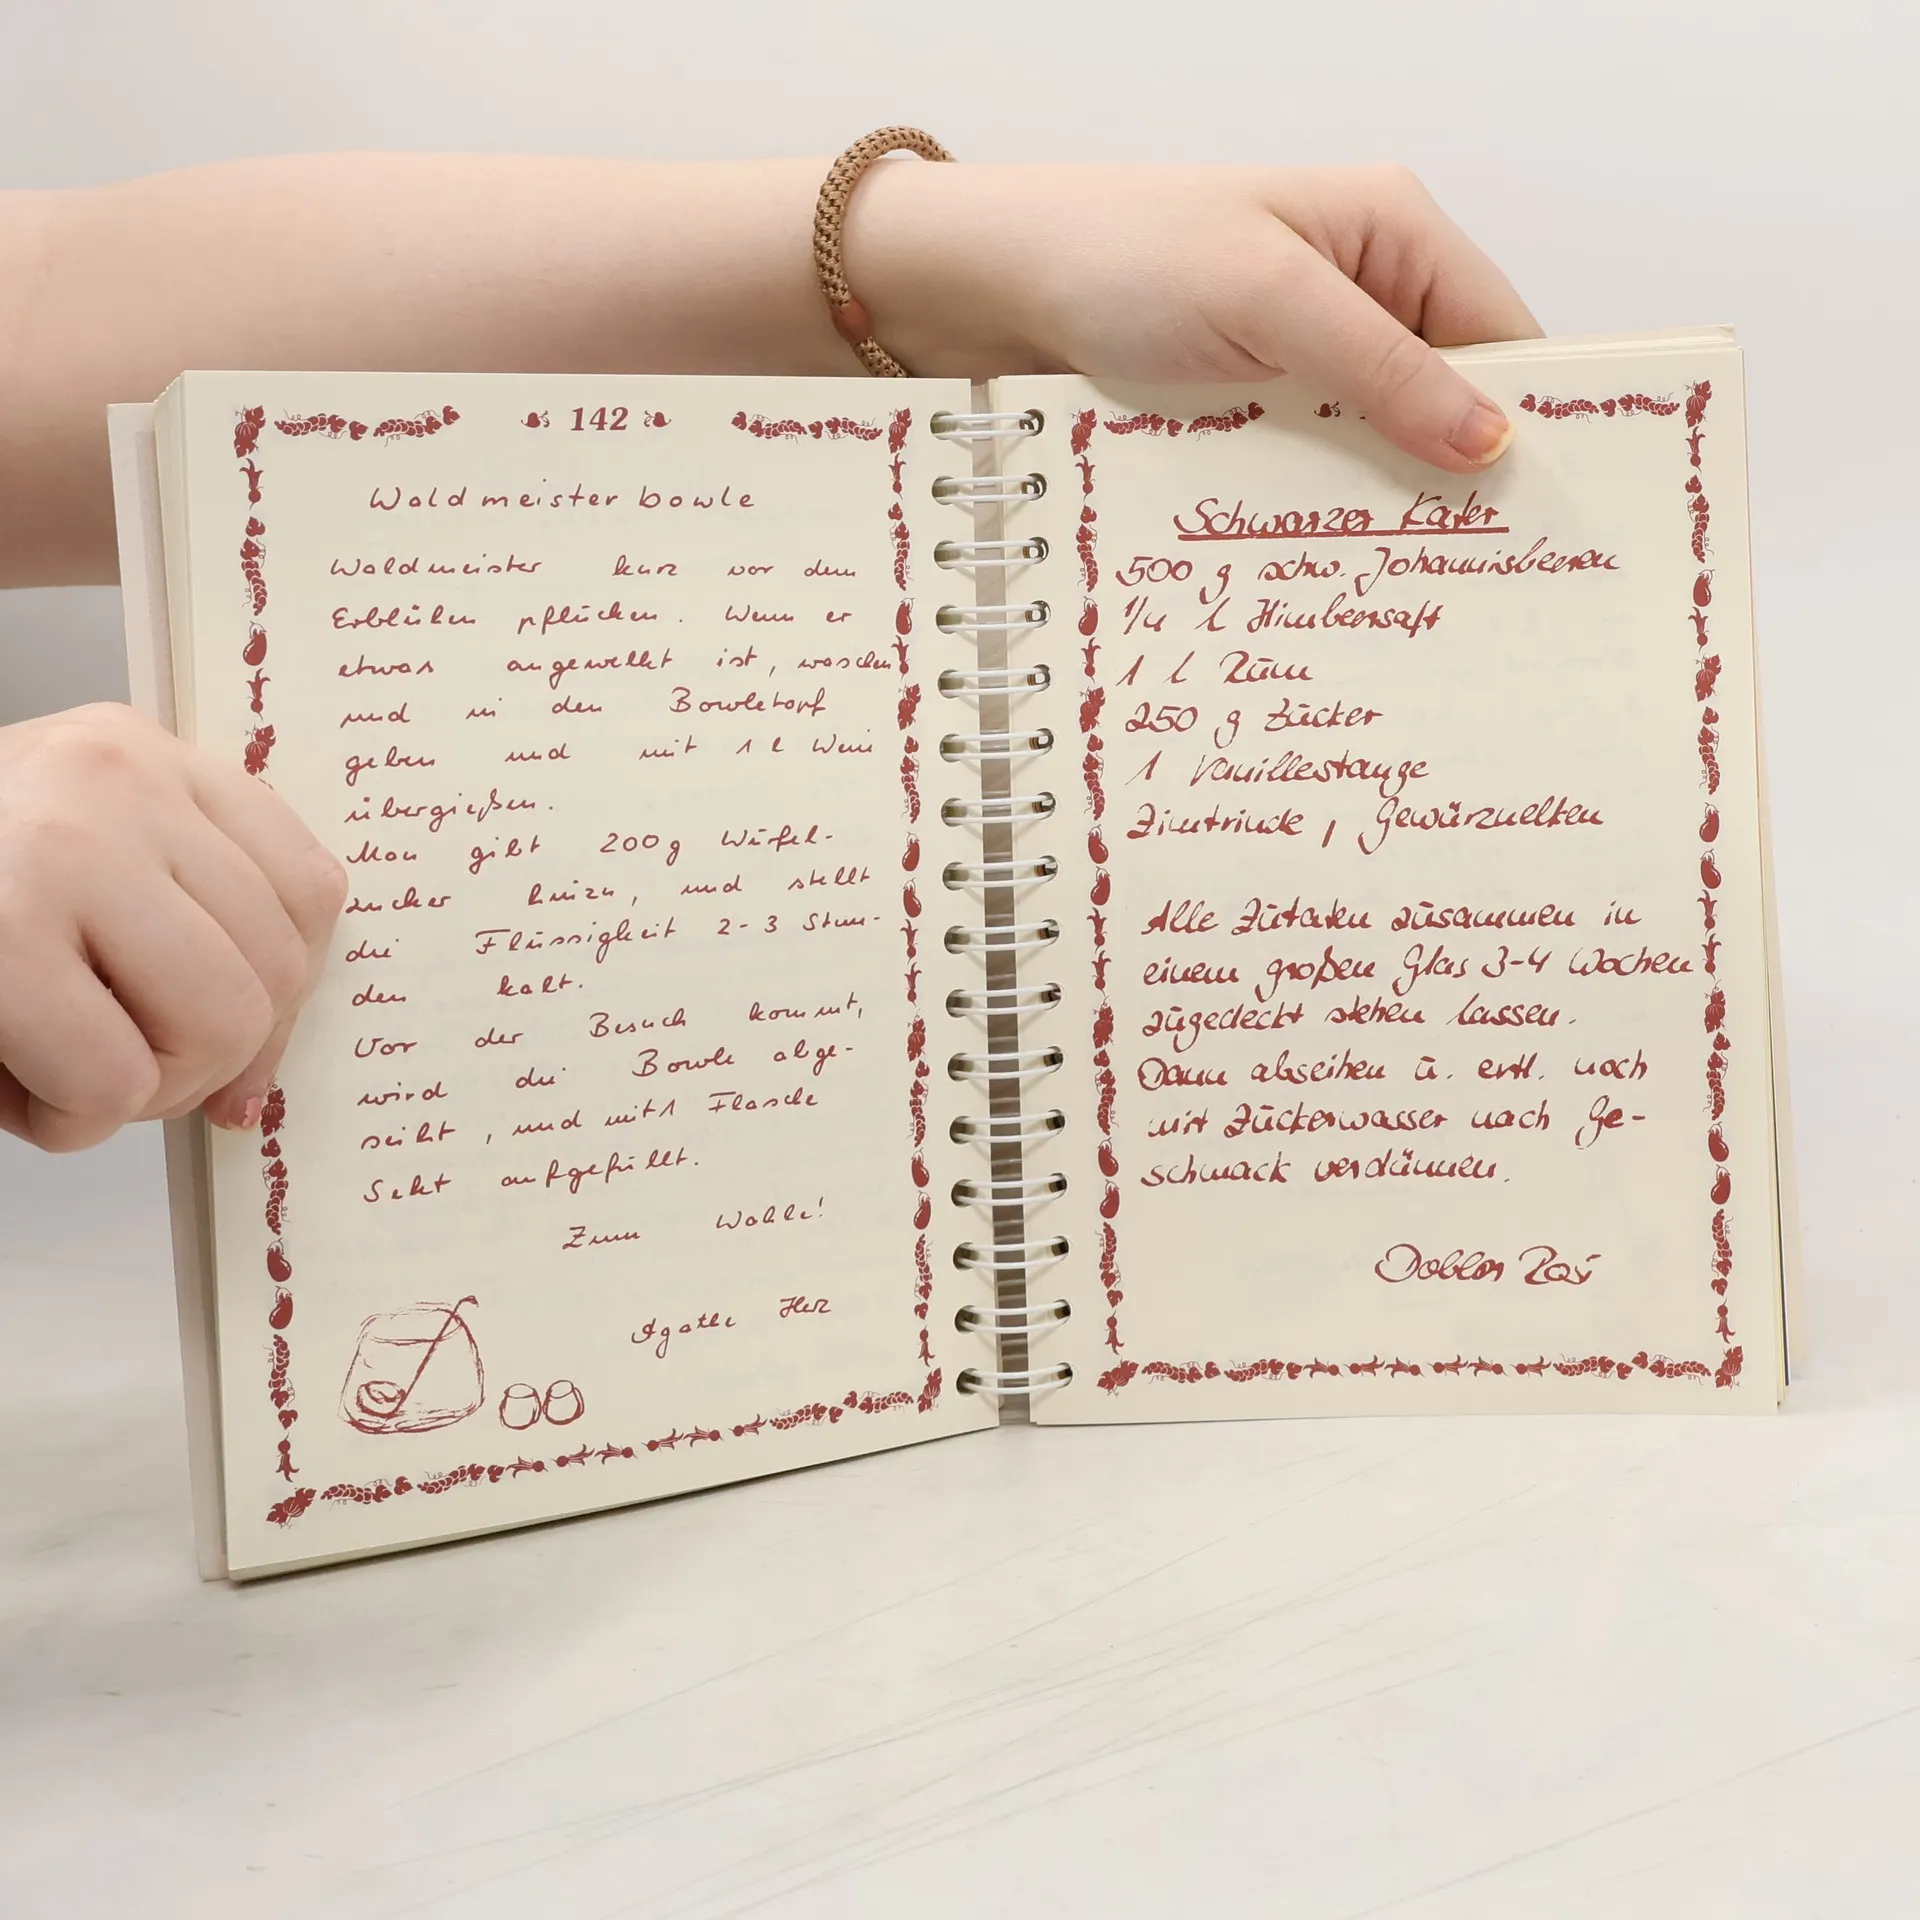 142
Waldmeisterbowle
Waldmeister kurz vor dem
Erblühen pflücken. Wenn er
etwas angewelkt ist, waschen
und in den Bowletopf
geben und mit 1 l Wein
übergießen.
Man gibt 200 g Würfel-
zucker hinzu, und stellt
die Flüssigkeit 2-3 Stun-
den kalt.
Vor der Besuch kommt,
wird die Bowle abge-
seiht, und mit 1 Flasche
Sekt aufgefüllt.
Zum Wohle!
Agathe Herz
Schwarzer Kater
500 g schw. Johannisbeeren
1/4 l Himbeersaft
1 l Rum
250 g Zucker
1 Vanillestange
Zimtrinde, Gewürznelken
Alle Zutaten zusammen in
einem großen Glas 3-4 Wochen
zugedeckt stehen lassen.
Dann abseihen u. evtl. noch
mit Zuckerwasser nach Ge-
schmack verdünnen.